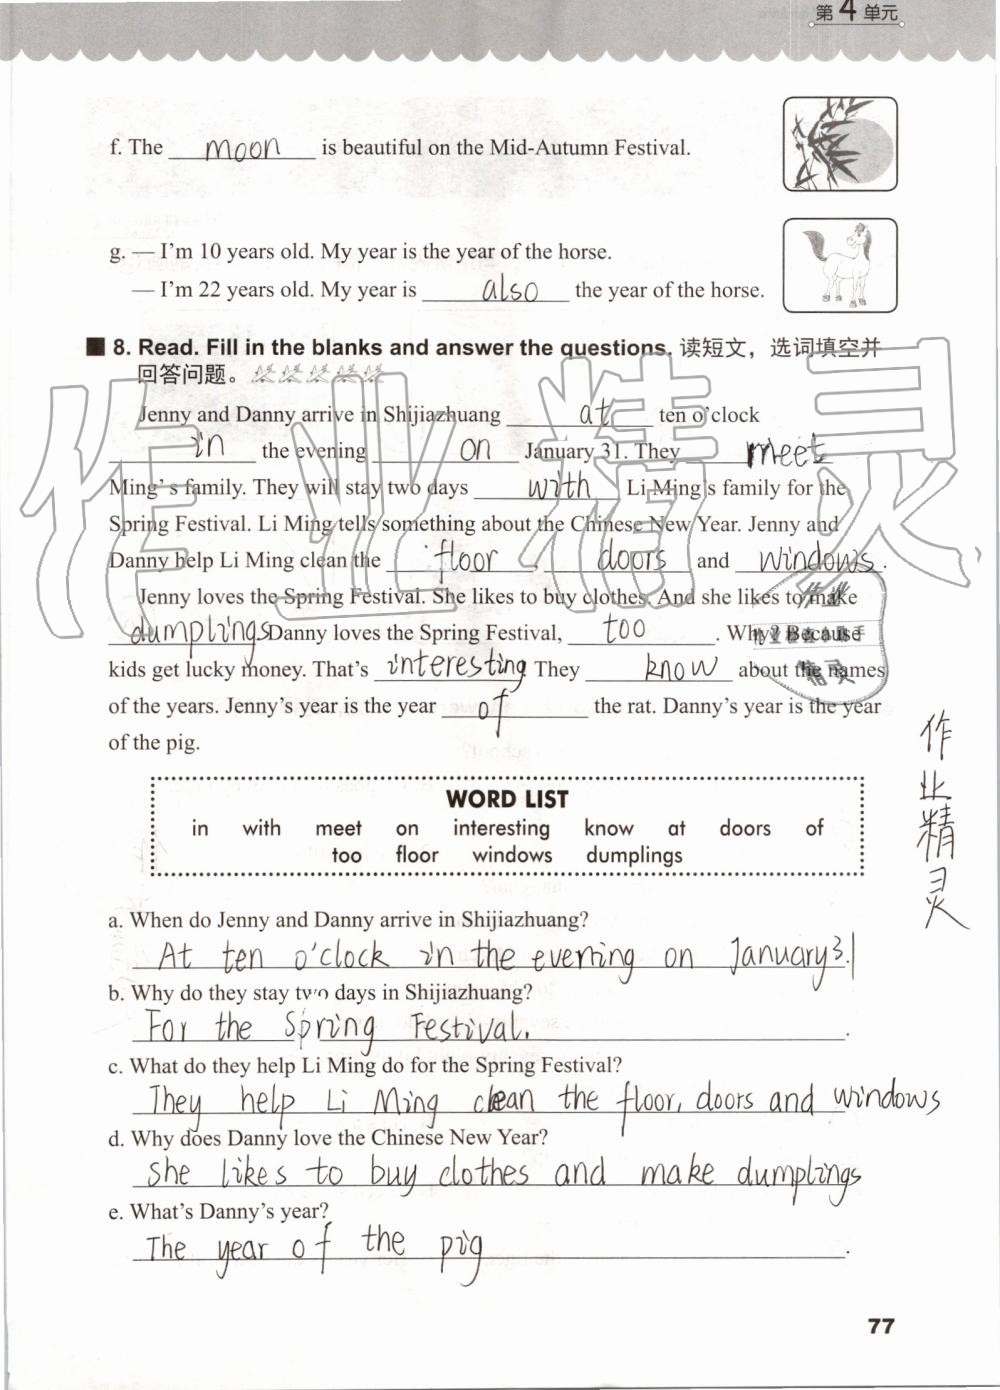 第4单元
f. The moon is beautiful on the Mid-Autumn Festival.
g. — I'm 10 years old. My year is the year of the horse.
— I'm 22 years old. My year is also the year of the horse.
8. Read. Fill in the blanks and answer the questions. 读短文，选词填空并
回答问题。
Jenny and Danny arrive in Shijiazhuang at ten o'clock
in the evening on January 31. They meet
Ming's family. They will stay two days with Li Ming's family for the
Spring Festival. Li Ming tells something about the Chinese New Year. Jenny and
Danny help Li Ming clean the floor, doors and windows.
Jenny loves the Spring Festival. She likes to buy clothes. And she likes to make
dumplings. Danny loves the Spring Festival, too. Why? Because
kids get lucky money. That's interesting. They know about the names
of the years. Jenny's year is the year of the rat. Danny's year is the year
of the pig.
WORD LIST
in with meet on interesting know at doors of
too floor windows dumplings
a. When do Jenny and Danny arrive in Shijiazhuang?
At ten o'clock in the evening on January 31.
b. Why do they stay two days in Shijiazhuang?
For the Spring Festival.
c. What do they help Li Ming do for the Spring Festival?
They help Li Ming clean the floor, doors and windows
d. Why does Danny love the Chinese New Year?
She likes to buy clothes and make dumplings
e. What's Danny's year?
The year of the pig.
作业精灵
作业精灵
77